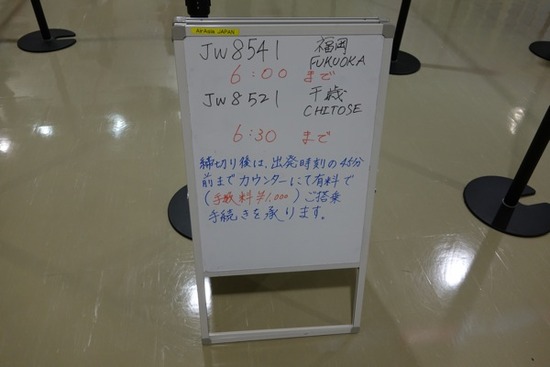 AirAsia JAPAN
JW8541 福岡
FUKUOKA
6:00 まで
JW8521 千歳
CHITOSE
6:30 まで
締切り後は、出発時刻の45分
前までカウンターにて有料で
(手数料¥1,000)ご搭乗
手続きを承ります。